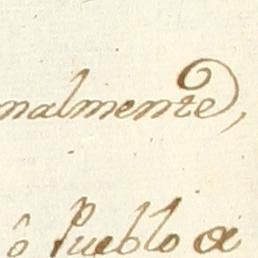 nalmente,
ô Pueblo de